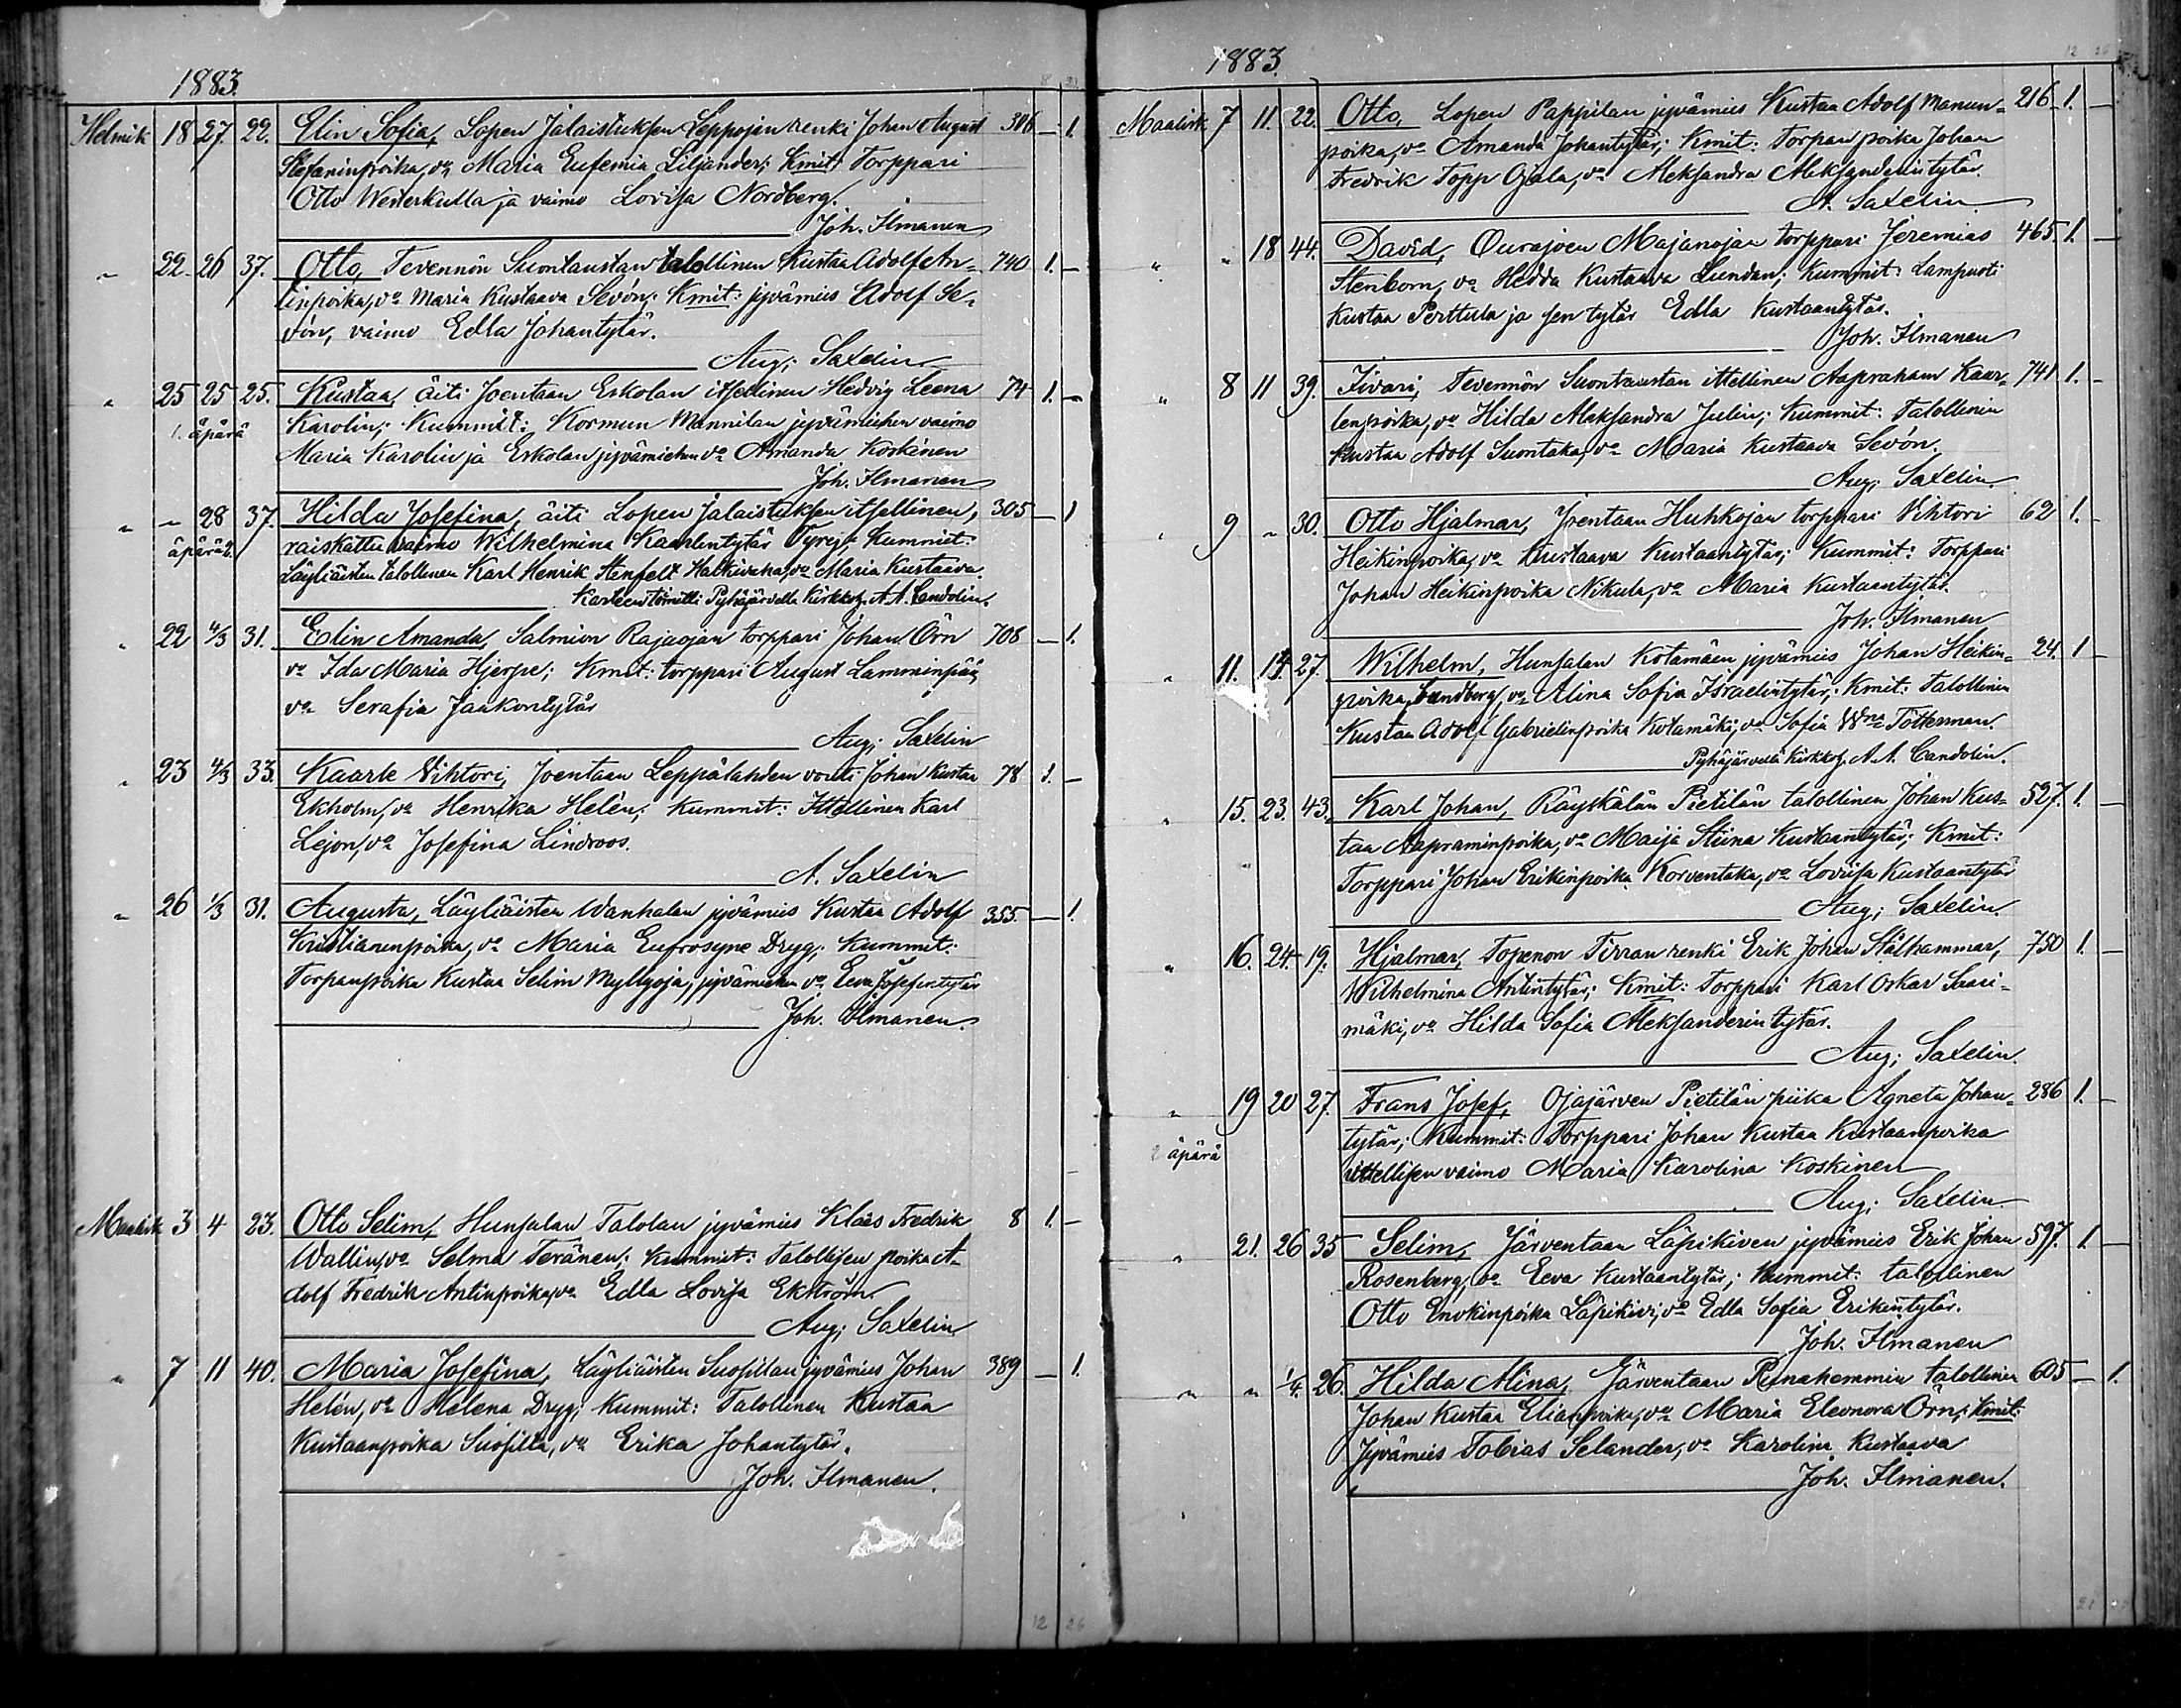 1883.
Helmik 18 27. 22. Elin Sofia, Lopen Jalaistuksen Leppojan renki Johan August 306 — 1.
Stefaninpoika, vo Maria Eufemia Liljander; Kmit: Torppari
Otto Westerkulla ja vaimo Lovisa Nordberg.
Joh. Ilmanen
" 22 26 37. Otto, Tevennön Suontaustan talollinen Kustaa Adolf An- 740 1. —
tinpoika, vo Maria Kustaava Sevón; Kmit: jyvämies Adolf Se-
vón, vaimo Edla Johantytär.
Aug; Saxelin
" 25 25 25. Kustaa, äiti Joentaan Eskolan itsellinen Hedvig Leena 74 1. —
1. äpärä Karolin; Kummit: Kormun Mannilan jyvämiehen vaimo
Maria Karolin ja Eskolan jyvämiehen vo Amanda Koskinen
Joh. Ilmanen
" " 28 37. Hilda Josefina, äiti Lopen Jalaistuksen itsellinen, 305 — 1
äpärä raiskattu vaimo Wilhelmina Kaarlentytär Tyrej; Kummit:
Läyliäisten talollinen Karl Henrik Stenfelt Halkivaha, vo Maria Kustaava.
Kasteen toimitti Pyhäjärvellä Kirkkoh. A. A. Candolin.
" 22 4/3 31. Elin Amanda, Salmion Rajaojan torppari Johan Örn 708 — 1.
vo Ida Maria Hjerpe; Kmit: torppari August Lamminpää,
vo Serafia Jaakontytär
Aug; Saxelin
" 23 4/3 33. Kaarle Vihtori, Joentaan Leppälahden vouti Johan Kustaa 78 1. —
Ekholm, vo Henrika Helén; Kummit: Ittellinen Karl
Lejon, vo Josefina Lindroos.
A. Saxelin
" 26 1/3 31. Augusta, Läyliäisten Wanhalan jyvämies Kustaa Adolf 355 — 1.
Kristianinpoika, vo Maria Eufrosyne Dryg; Kummit:
Torpanpoika Kustaa Selim Myllyoja, jyvämiehen vo Eeva Josefintytär
Joh. Ilmanen.
Maalisk 3 4 23. Otto Selim, Hunsalan Talolan jyvämies Klaes Fredrik 8 1. —
Wallin, vo Selma Teränen; Kummit: Talollisen poika A-
dolf Fredrik Antinpoika, vo Edla Lovisa Ekström.
Aug; Saxelin
" 7 11 40. Maria Josefina, Läyliäisten Suosillan jyvämies Johan 389 — 1.
Helén, vo Helena Dryg; Kummit: Talollinen Kustaa
Kustaanpoika Suosilta, vo Erika Johantytär.
Joh. Ilmanen.
1883.
Maalisk 7 11. 22. Otto, Lopen Pappilan jyvämies Kustaa Adolf Manun- 216 1. —
poika, vo Amanda Johantytär; Kmit: Torpan poika Johan
Fredrik Topp Ojala, vo Aleksandra Aleksanderintytär.
A. Saxelin
" " 18 44. David, Ourajoen Majanojan torppari Jeremias 465. 1. —
" Stenbom, vo Hedda Kustaava Lundan; Kummit: Lampuoti
Kustaa Perttula ja sen tytär Edla Kustaantytär.
Joh. Ilmanen
" 8 11 39. Iivari, Tevennön Suontaustan ittellinen Aapraham Kaar- 741 1. —
lenpoika, vo Hilda Aleksandra Julin; Kummit: Talollinen
Kustaa Adolf Suontaka, vo Maria Kustaava Sevón.
Aug; Saxelin.
" 9 " 30. Otto Hjalmar, Joentaan Huhkojan torppari Vihtori 62 1. —
Heikinpoika, vo Kustaava Kustaantytär; Kummit: Torppari
Johan Heikinpoika Nikula, vo Maria Kustaantytär.
Joh. Ilmanen
" 11. 14. 27. Wilhelm, Hunsalan Kotamäen jyvämies Johan Heikin- 24. 1 —
poika Sandberg, vo Alina Sofia Israelintytär; Kmit: Talollinen
Kustaa Adolf Gabrielinpoika Kotamäki, vo Sofia Wna Tötterman.
Pyhäjärvellä Kirkkoh. A. A. Candolin.
" 15. 23. 43. Karl Johan, Räyskälän Pietilän talollinen Johan Kus- 527. 1. —
" taa Aapraminpoika, vo Maija Stiina Kustaantytär; Kmit:
Torppari Johan Erikinpoika Korventaka, vo Lovisa Kustaantytär
Aug; Saxelin.
" 16. 24. 19. Hjalmar, Topenon Tirran renki Erik Johan Stålhammar, 750 1. —
Wilhelmina Antintytär; Kmit: Torppari Karl Oskar Saari-
mäki, vo Hilda Sofia Aleksanderintytär.
Aug; Saxelin.
" 19 20 27. Frans Josef, Ojajärven Pietilän piika Agneta Johan- 286 1. —
2 äpärä tytär; Kummit: Torppari Johan Kustaa Kustaanpoika
ittellisen vaimo Maria Karolina Koskinen
Aug; Saxelin
" 21. 26 35 Selim, Järventaan Läpikiven jyvämies Erik Johan 597. 1. —
Rosenberg, vo Eeva Kustaantytär; Kummit: talollinen
Otto Enokinpoika Läpikivi, vo Edla Sofia Erikintytär.
Joh. Ilmanen
" " 1/4. 26. Hilda Alina, Järventaan Punahemmin talollinen 605 — 1.
Johan Kustaa Elianpoika, vo Maria Eleonora Örn; Kmit:
Jyvämies Tobias Selander, vo Karolina Kustaava
Joh. Ilmanen.